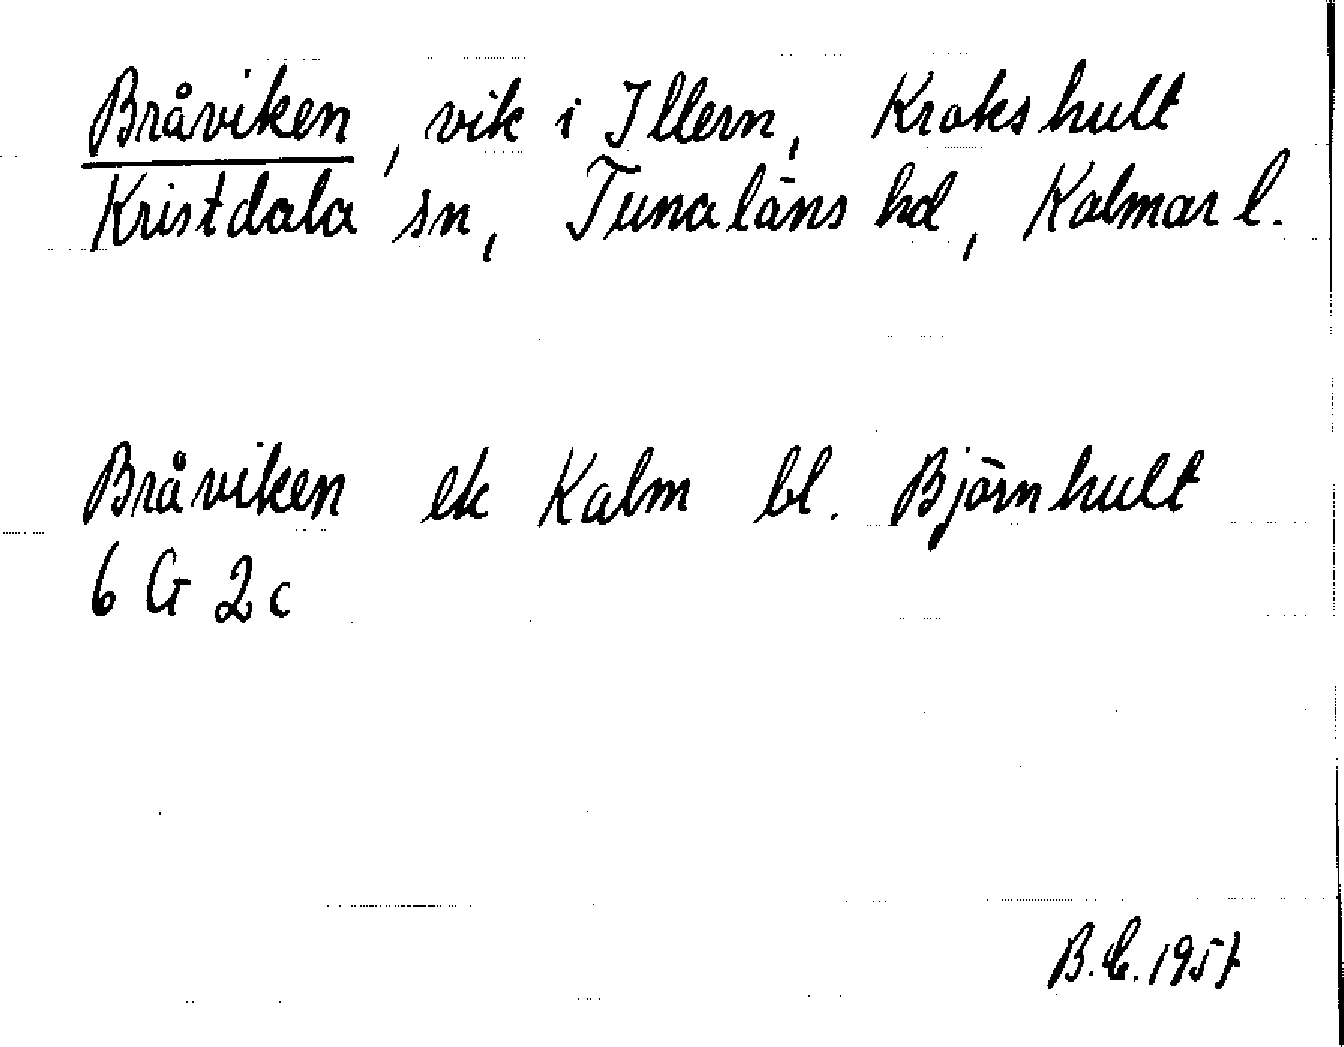 Bråviken, vik i Illern, Krokshult
Kristdala sn, Tunaläns hd, Kalmar l.
Bråviken ek Kalm bl. Björnhult
6 G 2c
B. E. 1957